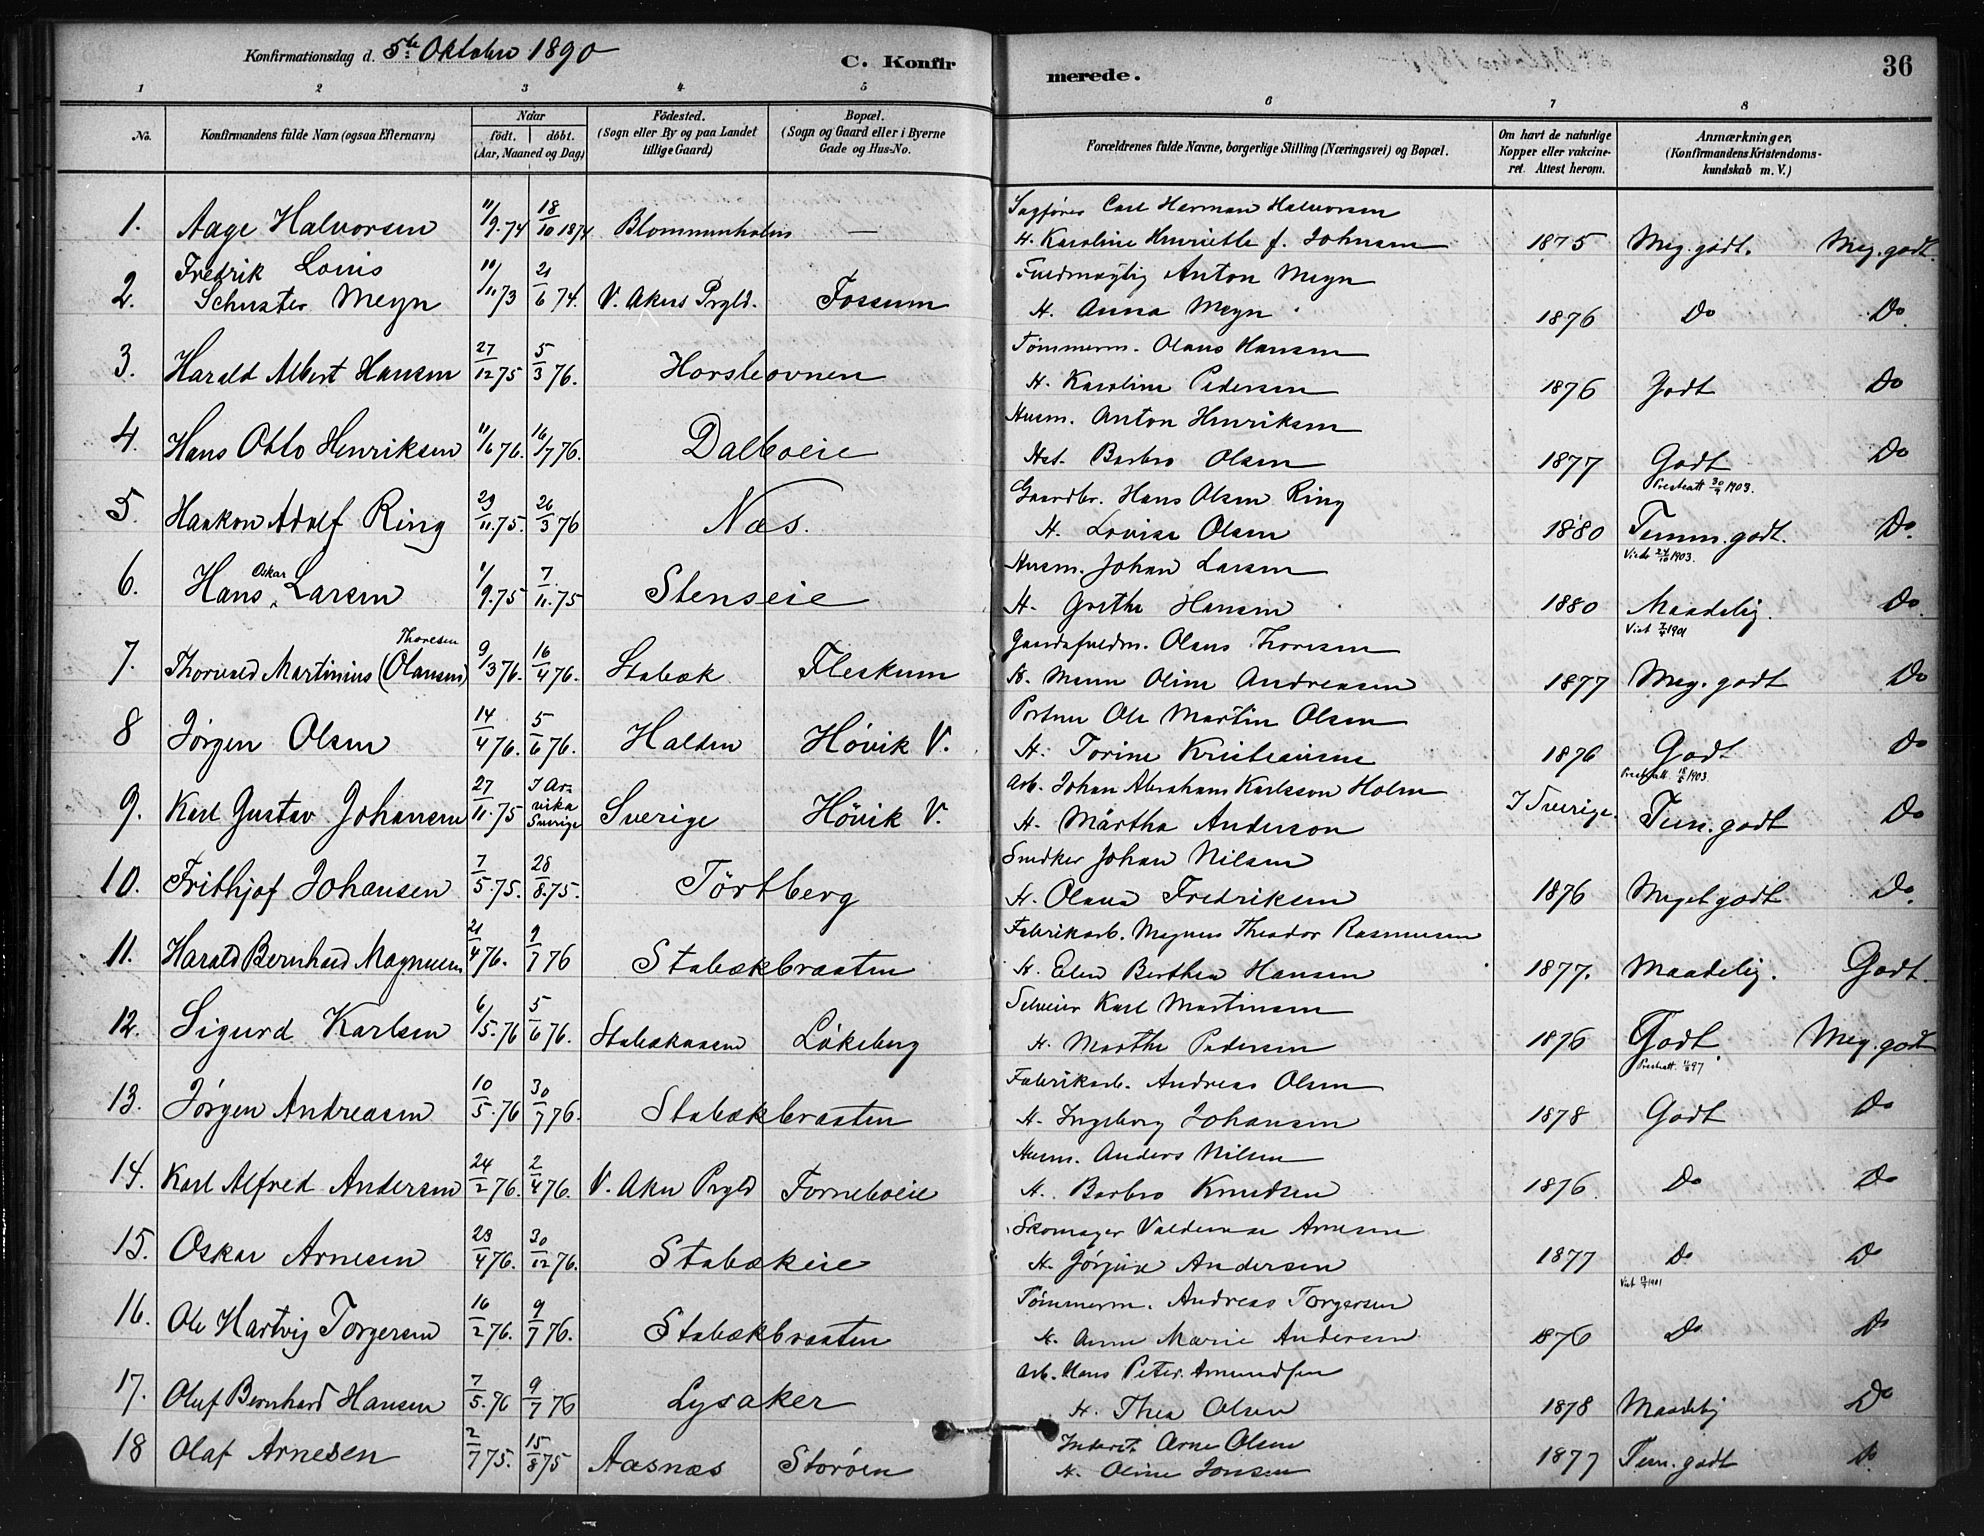 Konfirmationsdag d. 5te Oktober 1890
C. Konfirmerede.
36
1 2 3 4 5 6 7 8
No.
Konfirmandens fulde Navn (ogsaa Efternavn)
Naar
födt. döbt.
(Aar, Maaned og Dag)
Födested.
(Sogn eller By og paa Landet
tillige Gaard)
Bopæl.
(Sogn og Gaard eller i Byerne
Gade og Hus-No.
Forældrenes fulde Navne, borgerlige Stilling (Næringsvei) og Bopæl.
Om havt de naturlige
Kopper eller vakcine-
ret. Attest herom.
Anmærkninger.
(Konfirmandens Kristendoms-
kundskab m. V.)
1. Aage Halvorsen 11/9.74 18/10 1874 Blommenholm — Sagfører Carl Herman Halvorsen
H. Karoline Henriette f. Johnsen 1875 Meg. godt. Meg. godt.
2. Fredrik Louis
Schuster Meyn 10/11 73 21/6 74. V. Akers Prgld. Fossum Fuldmægtig Anton Meyn
H. Anna Meyn 1876 Do Do
3. Harald Albert Hansen 27/12 75 5/3 76. Horsleovnen Tømmerm. Olaus Hansen
H. Karoline Pedersen 1876 Godt Do
4. Hans Otto Henriksen 11/6 76. 16/7 76. Dalboeie Husm. Anton Henriksen
Hst. Barbro Olsen 1877 Godt Do
Presteatt 30/9 1903.
5. Haakon Adolf Ring 29/11.75. 26/3 76 Næs. Gaardbr. Hans Olsen Ring
H. Lovise Olsen 1880 Temm. godt. Do.
Viede 24/10 1903.
6. Hans Oskar Larsen 1/9.75 7/11.75 Stenseie Husm. Johan Larsen
H. Grethe Hansen 1880 Maadelig. Do.
Viet 1901
7. Thorvald Martinius (Olausen) Thoresen 9/3 76. 16/4 76. Stabæk Fleskum Gaardsfuldm. Olaus Thoresen
H. Maren Oline Andreasen 1877 Meg. godt Do
8 Jørgen Olsen 14/4 76. 5/6 76. Halden Høvik V. Portner Ole Martin Olsen
H. Torine Kristiansen 1876 Godt Do
Presteatt. 1903
9. Karl Gustav Johansen 27/11.75 I Arvika Sverige Sverige Høvik V. Arb. Johan Abraham Karlsson Holm
H. Märtha Anderson I Sverige. Tem. godt Do
10. Frithjof Johansen 7/5.75. 28/8.75. Törtberg Snedker Johan Nilsen
H. Olava Fredriksen 1876 Meget godt Do.
11. Harald Bernhard Magnusen 21/4 76. 9/7 76 Stabækbraaten Fabrikarb. Magnus Theodor Rasmusen
H. Elen Berthea Hansen 1877. Maadelig. Godt.
12. Sigurd Karlsen 6/5.76 5/6 76. Stabækaasen Løkeberg Selveier Karl Martinsen
H. Marthe Pedersen 1876 Godt Meg. godt
Presteatt. 97
13. Jørgen Andreasen 10/5.76 30/7 76. Stabækbraaten Fabrikarb. Andreas Olsen
H. Ingeborg Johansen 1878 Godt Do
14. Karl Alfred Andersen 24/2 76. 2/4 76. V. Aker Prgld Forneboeie Husm. Anders Nilsen
H. Barbro Knudsen 1876 Do Do
15. Oskar Arnesen 23/4 76. 30/12 76. Stabækeie Skomager Valdemar Arnesen
H. Jørgine Andersen 1877 Do Do
Viet 1901
16. Ole Hartvig Torgersen 16/2 76. 9/7 76. Stabækbraaten Tømmerm. Andreas Torgersen
H. Anne Marie Andersen 1876 Do Do
17. Oluf Bernhard Hansen 7/5.76 9/7 76 Lysaker Arb. Hans Peter Amundsen
H. Thea Olsen 1878 Maadelig Do
18 Olaf Arnesen 2/7 75. 15/8 75 Aasnæs Storøen Inderst Arne Olsen
H. Oline Jonsen 1877 Tem. godt Do